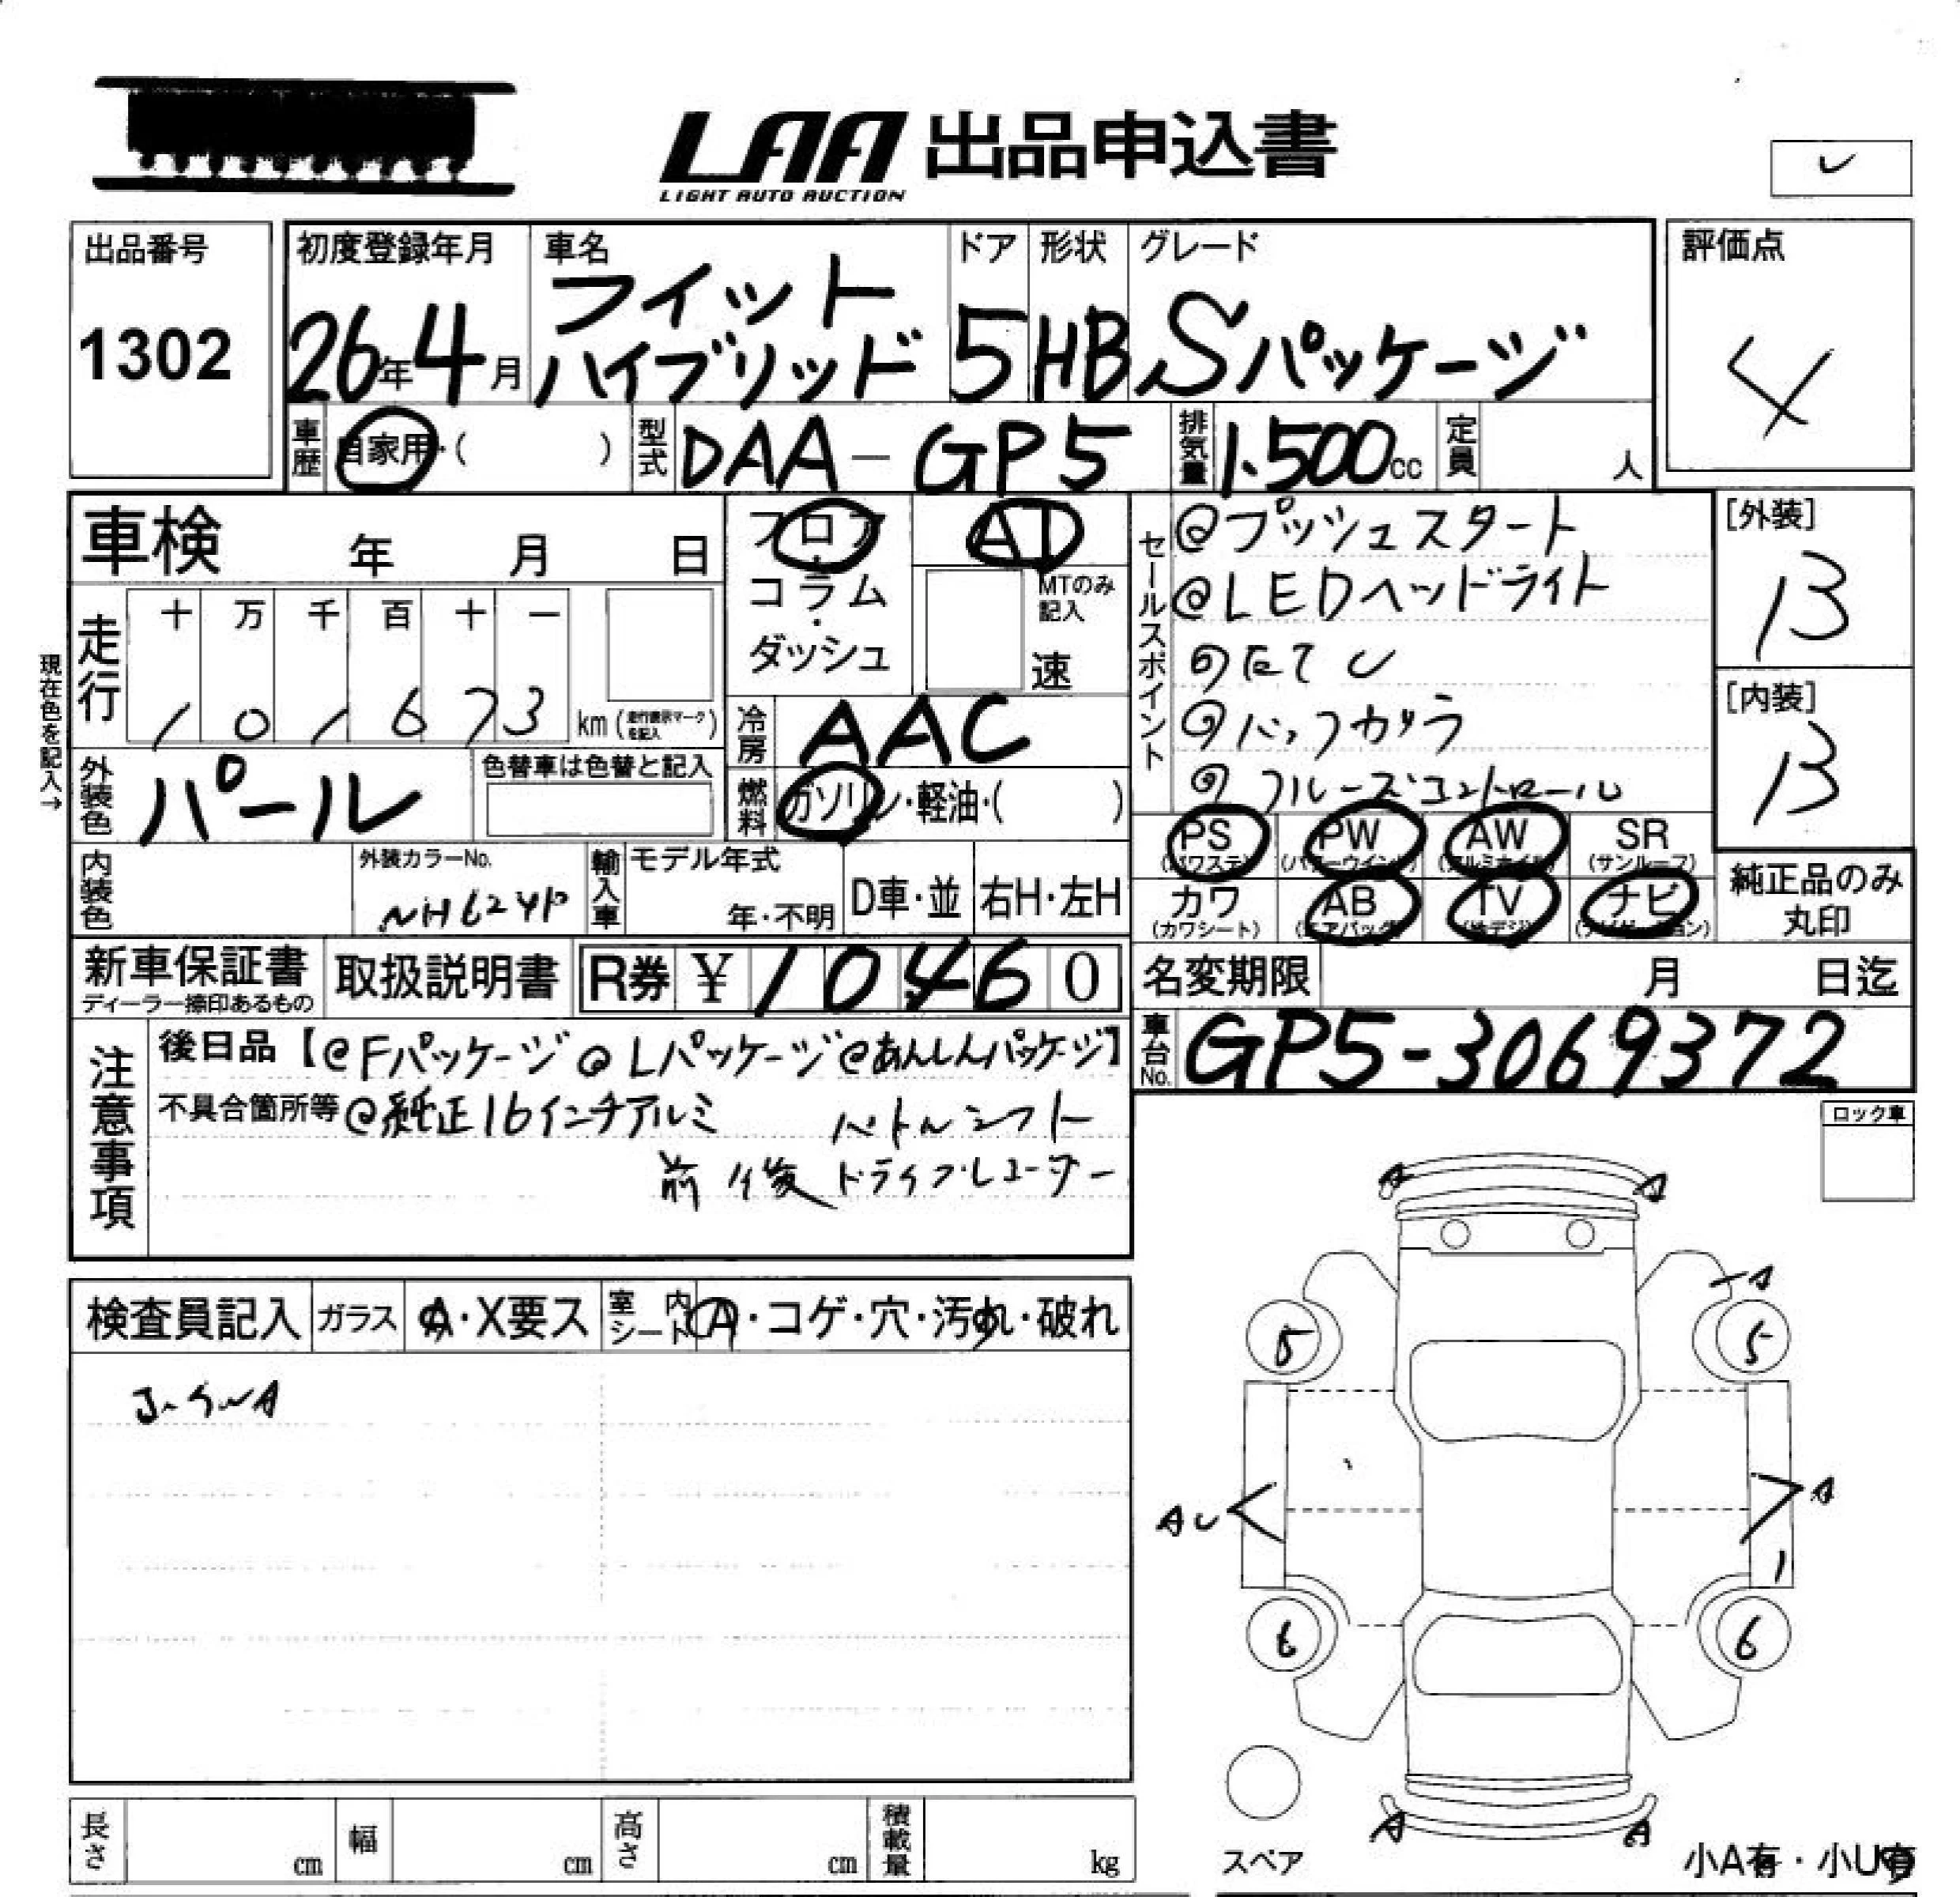 LAA 出品申込書
LIGHT AUTO AUCTION
出品番号
1302
初度登録年月
26年4月
車名
フィット
ハイブリッド
ドア
5
形状
HB
グレード
Sパッケージ
評価点
4
車歴 自家用・( )
型式 DAA-GP5
排気量 1.500cc
定員 人
車検 年 月 日
フロア・コラム・ダッシュ
AT
MTのみ記入
速
走行
十 万 千 百 十 一
1 0 1 6 7 3 km (走行表示マークを記入)
現在色を記入→
冷房 AAC
外装色 パール
色替車は色替と記入
燃料 ガソリン・軽油・( )
内装色
外装カラーNo.
NH624P
輸入車
モデル年式
年・不明
D車・並
右H・左H
セールスポイント
@プッシュスタート
@LEDヘッドライト
@バックカメラ
@クルーズコントロール
[外装]
B
[内装]
B
PS (パワステ)
PW (パワーウインド)
AW (アルミホイル)
SR (サンルーフ)
カワ (カワシート)
AB (エアバッグ)
TV (地デジ)
ナビ (ナビゲーション)
純正品のみ
丸印
新車保証書
ディーラー捺印あるもの
取扱説明書
R券 ¥10460
名変期限 月 日迄
車台No. GP5-3069372
注意事項
後日品【@Fパッケージ @Lパッケージ @あんしんパッケージ】
不具合箇所等 @純正16インチアルミ パドルシフト
前後ドライブレコーダー
ロック車
検査員記入
ガラス A・X要ス
室内シート A・コゲ・穴・汚れ・破れ
A
A
A
5
5
AU
A
1
6
6
A
A
スペア
小A有・小U有
長さ cm
幅 cm
高さ cm
積載量 kg